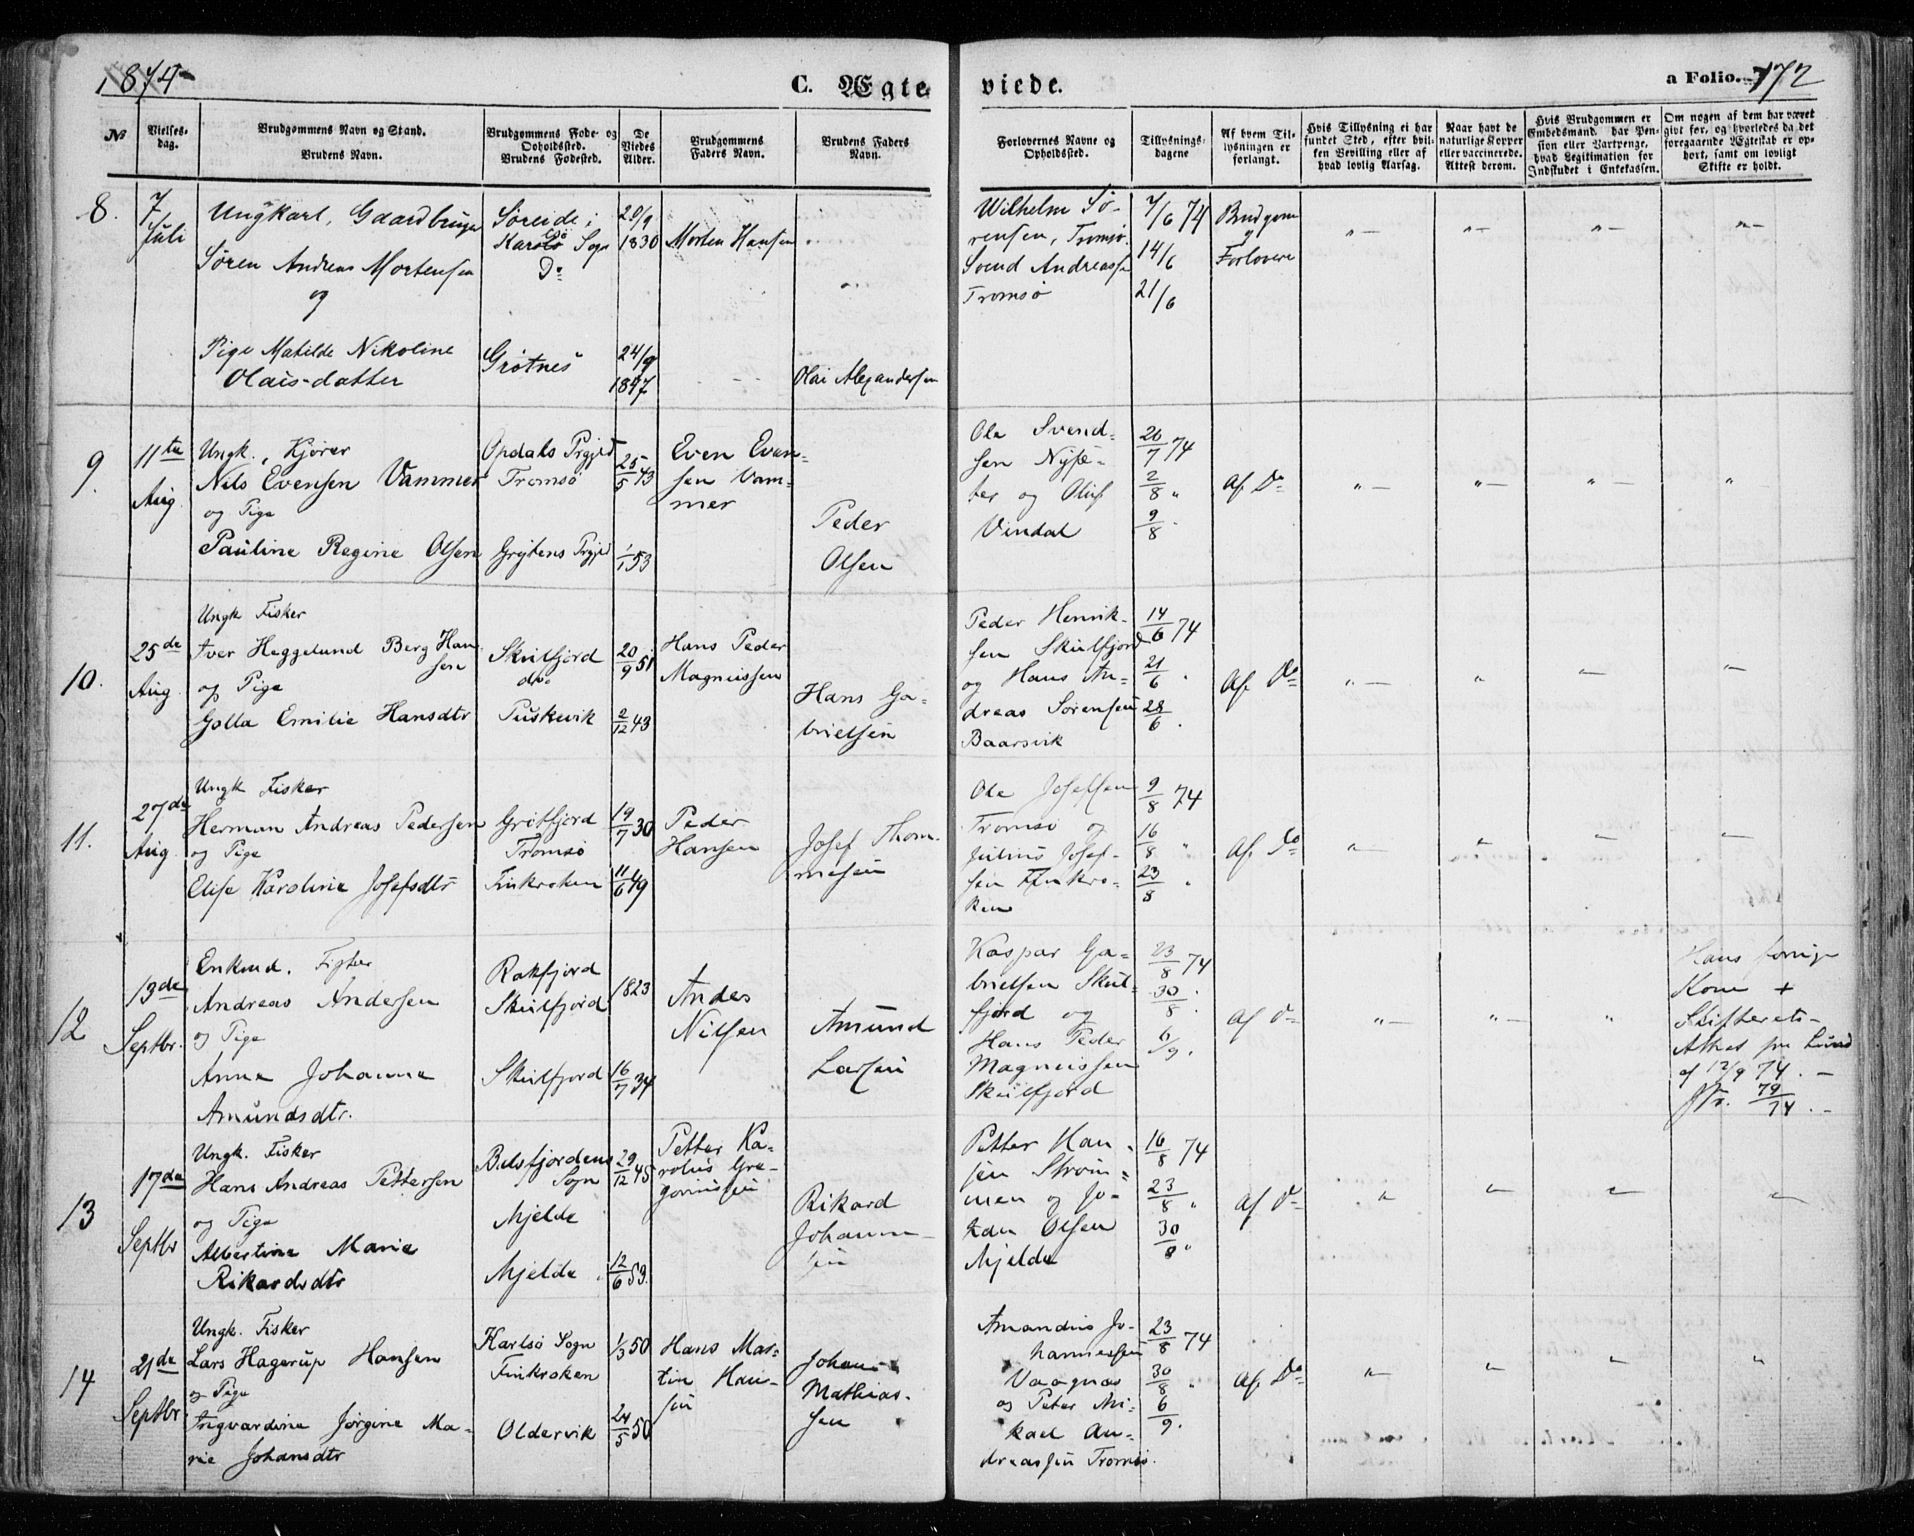 1874
C. Ægte
viede.
a Folio. 172
No
Vielses-
dag.
Brudgommens Navn og Stand.
Brudens Navn.
Brudgommens Føde- og
Opholdssted.
Brudens Fødested.
De
Viedes
Alder.
Brudgommens
Faders Navn.
Brudens Faders
Navn.
Forlovernes Navne og
Opholdssted.
Tillysnings-
dagene
Af hvem Til-
lysningen er
forlangt.
Hvis Tillysning ei har
fundet Sted, efter hvil-
ken Bevilling eller af
hvad lovlig Aarsag.
Naar havt de
naturlige Kopper
eller vaccinerede.
Attest derom.
Hvis Brudgommen er
Embedsmand, har Pen-
sion eller Vartpenge,
hvad Legitimation for
Indskudet i Enkekassen.
Om nogen af dem har været
givt før, og hvorledes da det
foregaaende Ægteskab er op-
hørt, samt om lovligt
Skifte er holdt.
8.
7
Juli
Ungkarl, Gaardbruger
Søren Andreas Mortensen
og
Pige Matilde Nikoline
Olais-datter
Karlsø Sogn
Do
Grøtnes
20/9
1830
24/9
1847
Morten Hansen
Olai Alexandersen
Wilhelm Sø-
rensen, Tromsø.
Svend Andreassen
Tromsø
7/6 74
14/6
21/6
Brudgom
og
Forlovere
9.
11te
Aug
Ungk., Kjører
Nils Evensen Vammer
og Pige
Pauline Regine Olsen
Opdals Prgjeld
Tromsø
Grytens Prgjeld
25/5 43
1/1 53
Even Even-
sen Vam-
mer
Peder
Olsen
Ole Svend-
sen Nysæ-
ter og Oluf
Vindal
26/7 74
2/8 "
9/8
Af Do
10.
25de
Aug
Ungk Fisker
Iver Heggelund Berg Han-
sen
og Pige
Golla Emilie Hansdtr
Skulfjord
do
Tuskevik
20/9 51
2/12 43
Hans Peder
Magnussen
Hans Ga-
brielsen
Peder Henrik-
sen Skulfjord
og Hans An-
dreas Sørensen
Baarsvik
14/6 74
21/6 "
28/6 "
Af. Do
11.
27de
Aug
Ungk Fisker
Herman Andreas Pedersen
og Pige
Elise Karoline Josefsdtr
Grøtfjord
Tromsø
Finkroken
19/7 30
11/6 49
Peder
Hansen
Josef Thom-
mesen
Ole Josefsen
Tromsø og
Julius Josef-
sen Finkro-
ken
9/8 74
16/8 "
23/8 "
Af. Do
12
13de
Septbr.
Enkmd. Fisker
Andreas Andersen
og Pige
Anne Johanna
Amundsdtr.
Rakfjord
Skulfjord
Skulfjord
1823
16/7 34
Andes
Nilsen
Amund
Larsen
Kaspar Ga-
brielsen Skul-
fjord og
Hans Peder
Magnussen
Skulfjord
23/8 74
30/8 .
6/9 .
Af Do
Hans forrige
Kone +
Skifterets-
Attest
af 12/9 74. —
79/74
13
17de
Septbr
Ungk. Fisker
Hans Andreas Pettersen
og Pige
Albertine Marie
Rikardsdtr
Balsfjordens
Sogn
Mjelde
Mjelde
29/12 45
12/6 53.
Petter Ka-
rolus Gre-
goriussen
Rikard
Johann-
sen
Petter Han-
sen Strøm-
men og Jo-
Olsen
Mjelde
16/8 74
23/8 "
30/8 "
Af Do
14
21de
Septbr
Ungk. Fisker
Lars Hagerup Hansen
og Pige
Ingvardine Jørgine Ma-
rie Johansdtr
Karlsø Sogn
Finkroken
Oldervik
1/3 50
24/5 50
Hans Mar-
tin Han-
sen
Johan
Mathias-
sen
Amandus Jo-
hannessen
Vaagnæs
og Peter Mi-
kael An-
dreassen Tromsø.
23/8 74
30/8 "
6/9.
Af. Do